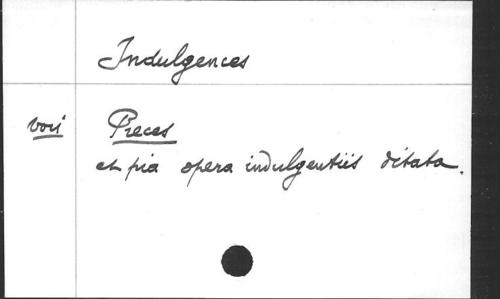 Indulgences
voir Preces
et pia opera indulgentiis ditata.